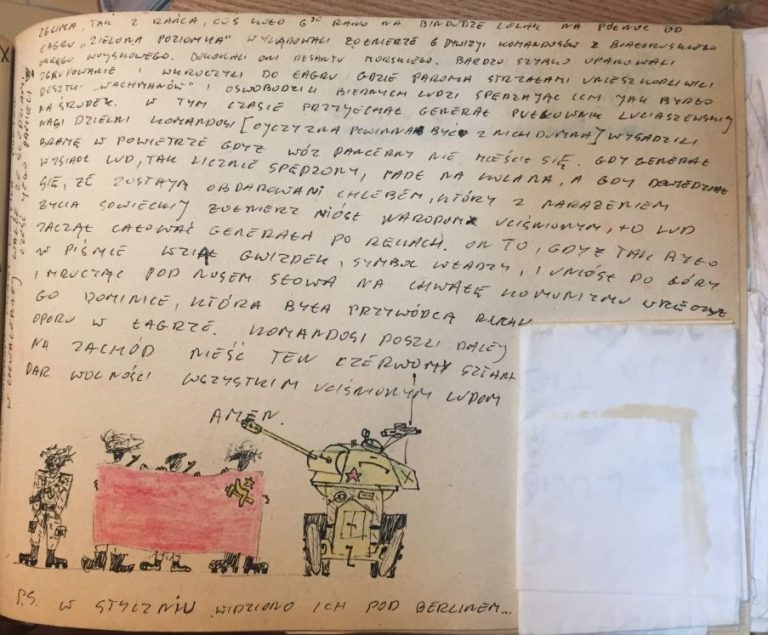 ZGLINA. TAK Z RAŃCA, COŚ KOŁO 6TEJ RANO NA BIRDUDZE LELAK. NA PÓŁNOC OD
ŁAGRU "ZIELONA POZIOMKA" WYLĄDOWALI ŻOŁNIERZE 6 DYWIZJI KOMANDOSÓW Z BIAŁORUSKIEGO
OKRĘGU WOJSKOWEGO. DOKONALI ONI DESANTU MORSKIEGO. BARDZO SZYBKO OPANOWALI
ZGRUPOWANIE I WKROCZYLI DO ŁAGRU GDZIE PAROMA STRZAŁAMI UNIESZKODLIWILI
RESZTKI "WACHMANÓW" I OSWOBODZILI BIEDNYCH LUDZI SPĘDZAJĄC ICH JAK BYDŁO
NA ŚRODEK. W TYM CZASIE PRZYJECHAŁ GENERAŁ PUŁKOWNIK LUCIASZEWSKIJ
NASI DZIELNI KOMANDOSI [OJCZYZNA POWINNA BYĆ Z NICH DUMNA] WYSADZILI
BRAMĘ W POWIETRZE GDYŻ WÓZ PANCERNY NIE MIEŚCIŁ SIĘ. GDY GENERAŁ
WYSIADŁ LUD, TAK LICZNIE SPĘDZONY, PADŁ NA KOLANA, A GDY DOWIEDZIAŁ
SIĘ, ŻE ZOSTANĄ OBDAROWANI CHLEBEM, KTÓRY Z NARAŻENIEM
ŻYCIA SOWIECKIJ ŻOŁNIERZ NIÓSŁ NARODOM UCIŚNIONYM, TO LUD
ZACZĄŁ CAŁOWAĆ GENERAŁA PO RĘKACH. ON TO, GDYŻ TAK BYŁO
W PIŚMIE WZIĄŁ GWIZDEK, SYMBOL WŁADZY, I UNIÓSŁ DO GÓRY
I MRUCZĄC POD NOSEM SŁOWA NA CHWAŁĘ KOMUNIZMU WRĘCZYŁ
GO DOMINICE, KTÓRA BYŁA PRZYWÓDCĄ RUCHU
OPORU W ŁAGRZE. KOMANDOSI POSZLI DALEJ
NA ZACHÓD NIEŚĆ TEN CZERWONY SZTAN
DAR WOLNOŚCI WSZYSTKIM UCIŚNIONYM LUDOM
AMEN.
P.S. W STYCZNIU WIDZIANO ICH POD BERLINEM...